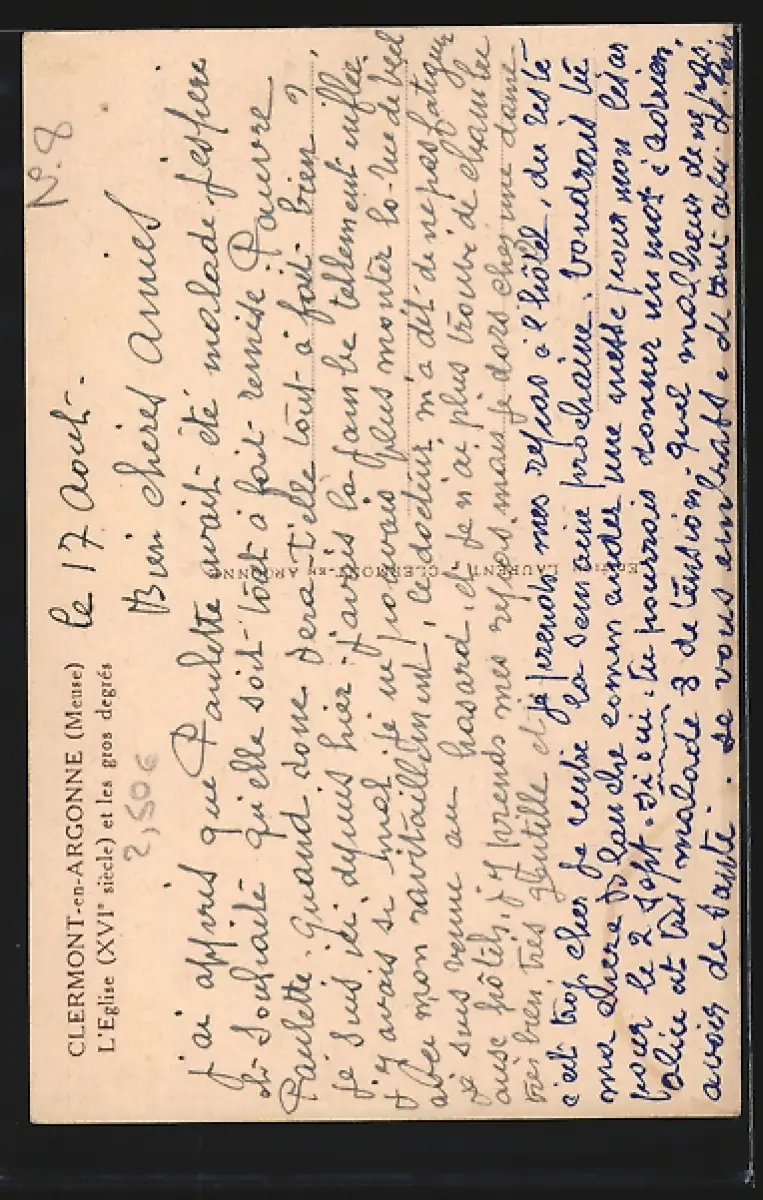 CLERMONT-en-ARGONNE (Meuse)
L'Eglise (XVIe siècle) et les gros degrés
N. 8
2,50€
le 17 Aout.
Bien chères amies
j'ai appris que Paulette avait été malade j'espère
et souhaite qu'elle soit tout à fait remise Pauvre
Paulette. quand donc sera t'elle tout à fait bien ?
je suis ici depuis hier. j'avais la jambe tellement enflée,
j'y avais si mal je ne pouvais plus monter la rue de
avec mon ravitaillement, le docteur m'a dit de ne pas fatiguer
je suis venue au hasard, et je n'ai plus trouvé de chambre
aux hôtels, j'y prends mes repas mais je dors chez une dame
très bien, très gentille et je prends mes repas à l'hôtel, du reste
c'est trop cher je rentre la semaine prochaine. Voudrais tu
ma chère Blanche commander une messe pour mon César
pour le 2 Sept. si oui. tu pourrais donner un mot à Adrien,
Alice est très malade 3 de tension. quel malheur de ne pas
avoir de santé. je vous embrasse de tout
EDITION LAURENT, CLERMONT-EN-ARGONNE